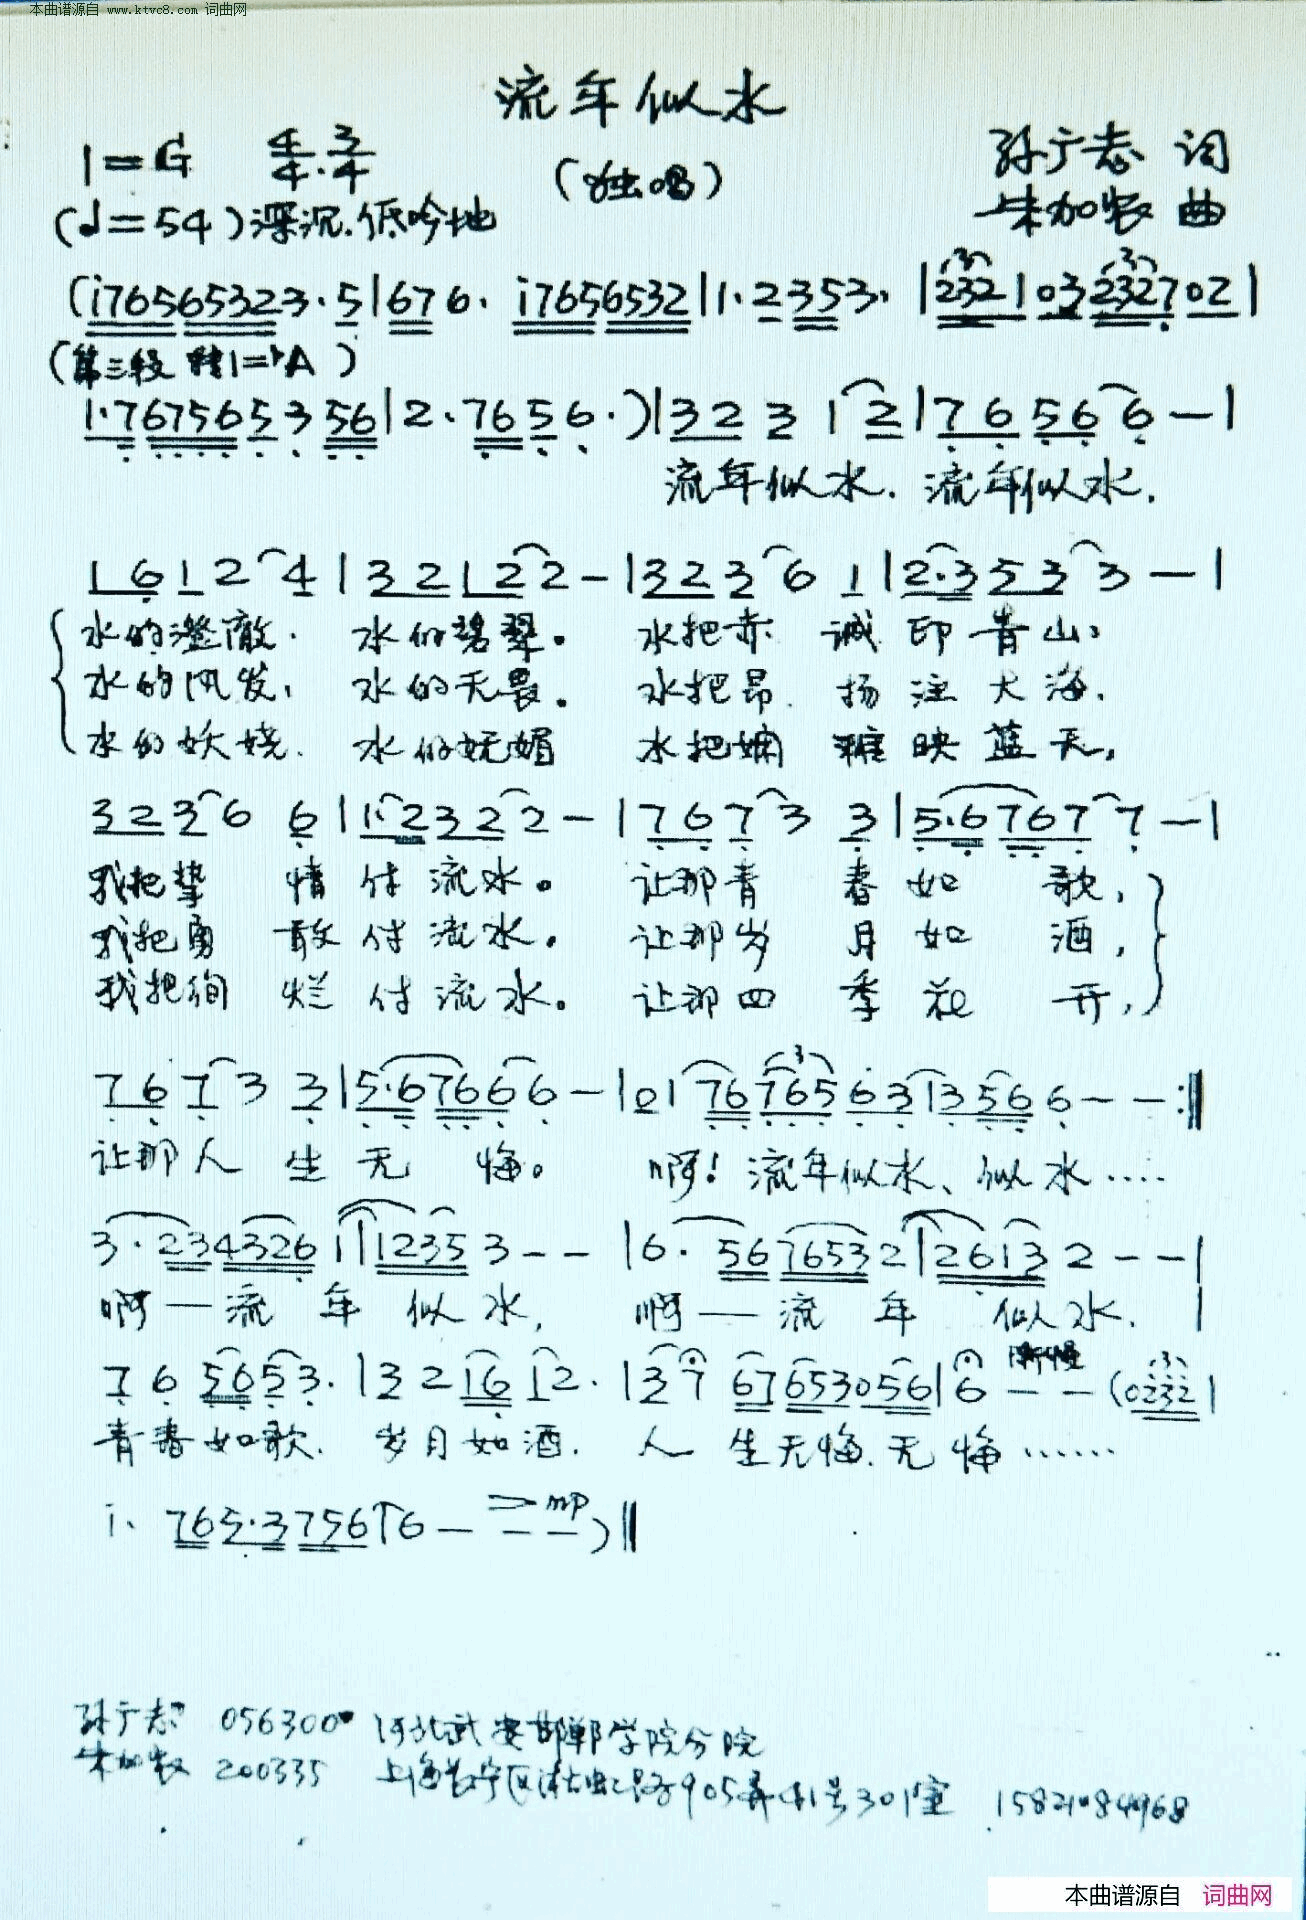 本曲谱源自 www.ktvc8.com 词曲网
流年似水
1=G 4/4 3/4 (独唱) 孙广志 词
(♩=54)深沉.低吟地 朱加农 曲
(i76565323.5|676. i7656532|1.2353. |232103232702|
(第三段 转1=♭A)
1.767565356|2.7656.)|32312|76566-|
流年似水. 流年似水.
16124|32122-|32361|2.3533-|
水的澄澈. 水的碧翠。 水把赤 诚 印 青 山、
水的风发, 水的无畏。 水把昂 扬 注 大 海.
水的妖娆. 水的妩媚 水把娴 雅 映 蓝 天,
32366|1.2322-|76733|5.67677-|
我把挚 情 付 流 水。 让那青 春 如 歌,
我把勇 敢 付 流 水。 让那岁 月 如 酒,
我把绚 烂 付 流 水。 让那四 季 花 开,
76733|5.67666-|0176765633566--:‖
让那人 生 无 悔。 啊! 流年似水、似水····
3.2343261|12353--|6.5676532|26132--|
啊—流 年 似 水, 啊—流 年 似水.
765653.|321612.|3767653056|6--(0232|
渐慢
青春如歌. 岁月如酒. 人 生无悔.无 悔······
i. 765.37566---)‖
mp
孙广志 056300 河北武安邯郸学院分院
朱加农 200335 上海长宁区 905弄41号301室 15821084968
本曲谱源自 词曲网